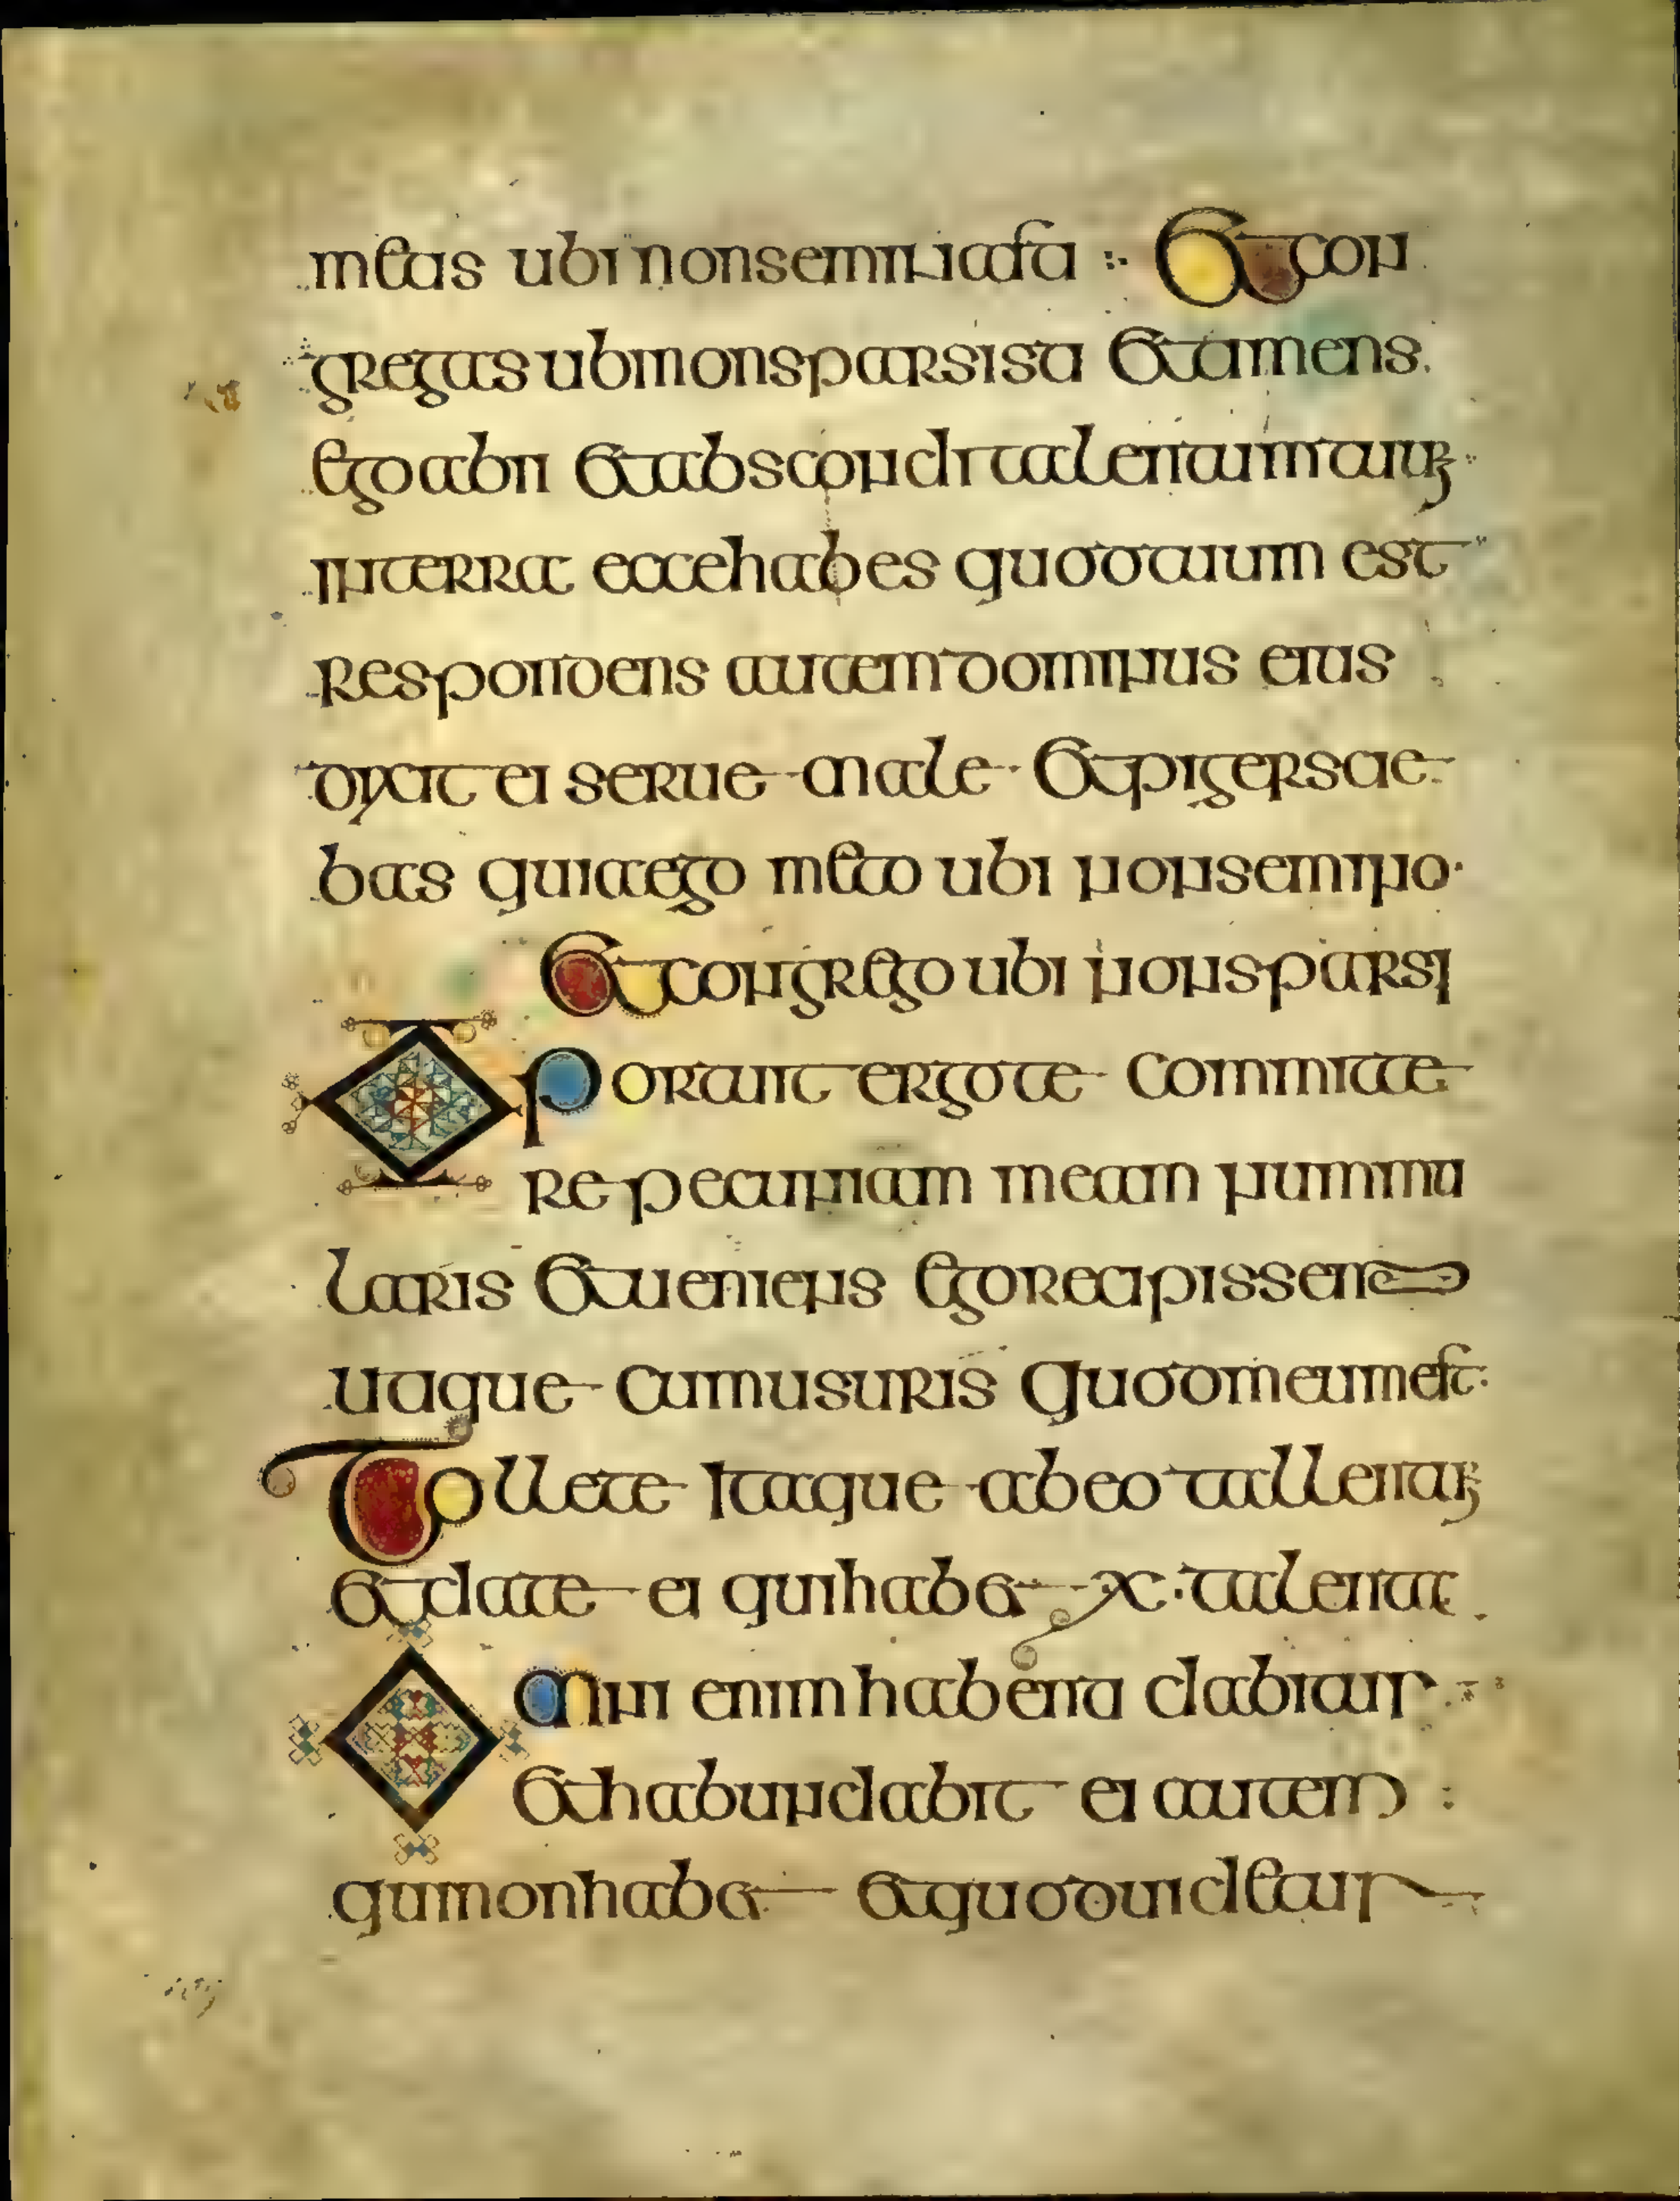 metis ubi non seminasti Et con
gregas ubi non sparsisti Et timens
ego abii et abscondi talentum tuum
in terra ecce habes quod tuum est
Respondens autem dominus eius
dixit ei serue male et piger scie
bas quia ego meto ubi non semino
Et congrego ubi non sparsi
Oportuit ergo te committe
re pecuniam meam nummu
laris et ueniens ego recipissem
utique cum usuris quod meum est
Tollete itaque ab eo tallentum
et date ei qui habet x talenta
Omni enim habenti dabitur
et habundabit ei autem
qui non habet et quod uidetur